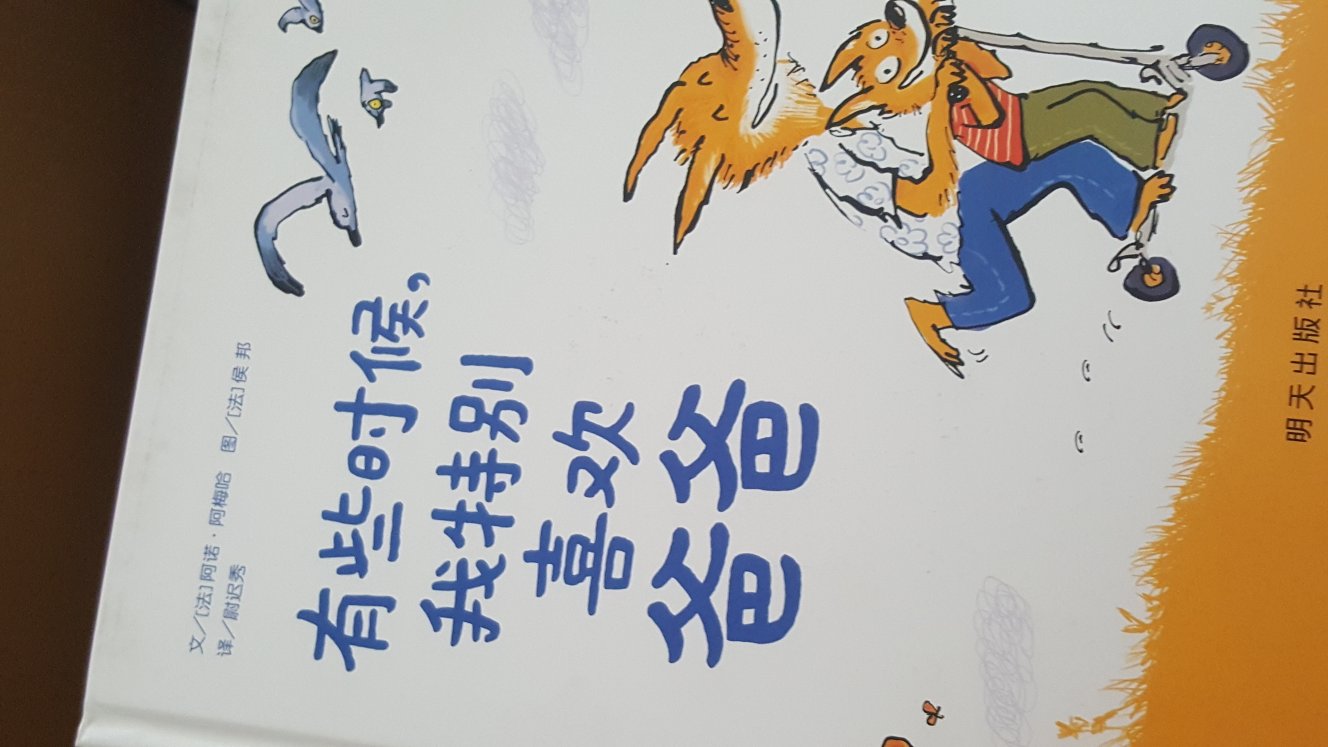 文／［法］阿诺·阿梅哈　图／［法］侯邦
译／尉迟秀
有些时候，
我特别
喜欢
爸爸
明天出版社